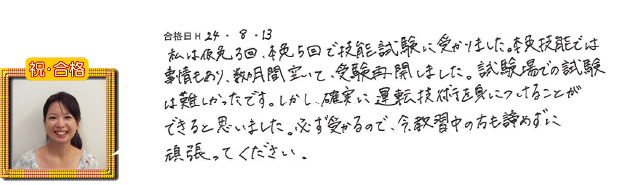 合格日 H 24・8・13
私は仮免3回、本免5回で技能試験に受かりました。本免技能では
事情もあり、数ヶ月間空いて、受験再開しました。試験場での試験
は難しかったです。しかし、確実に運転技術を身につけることが
できると思いました。必ず受かるので、今教習中の方も諦めずに
頑張ってください。
祝・合格